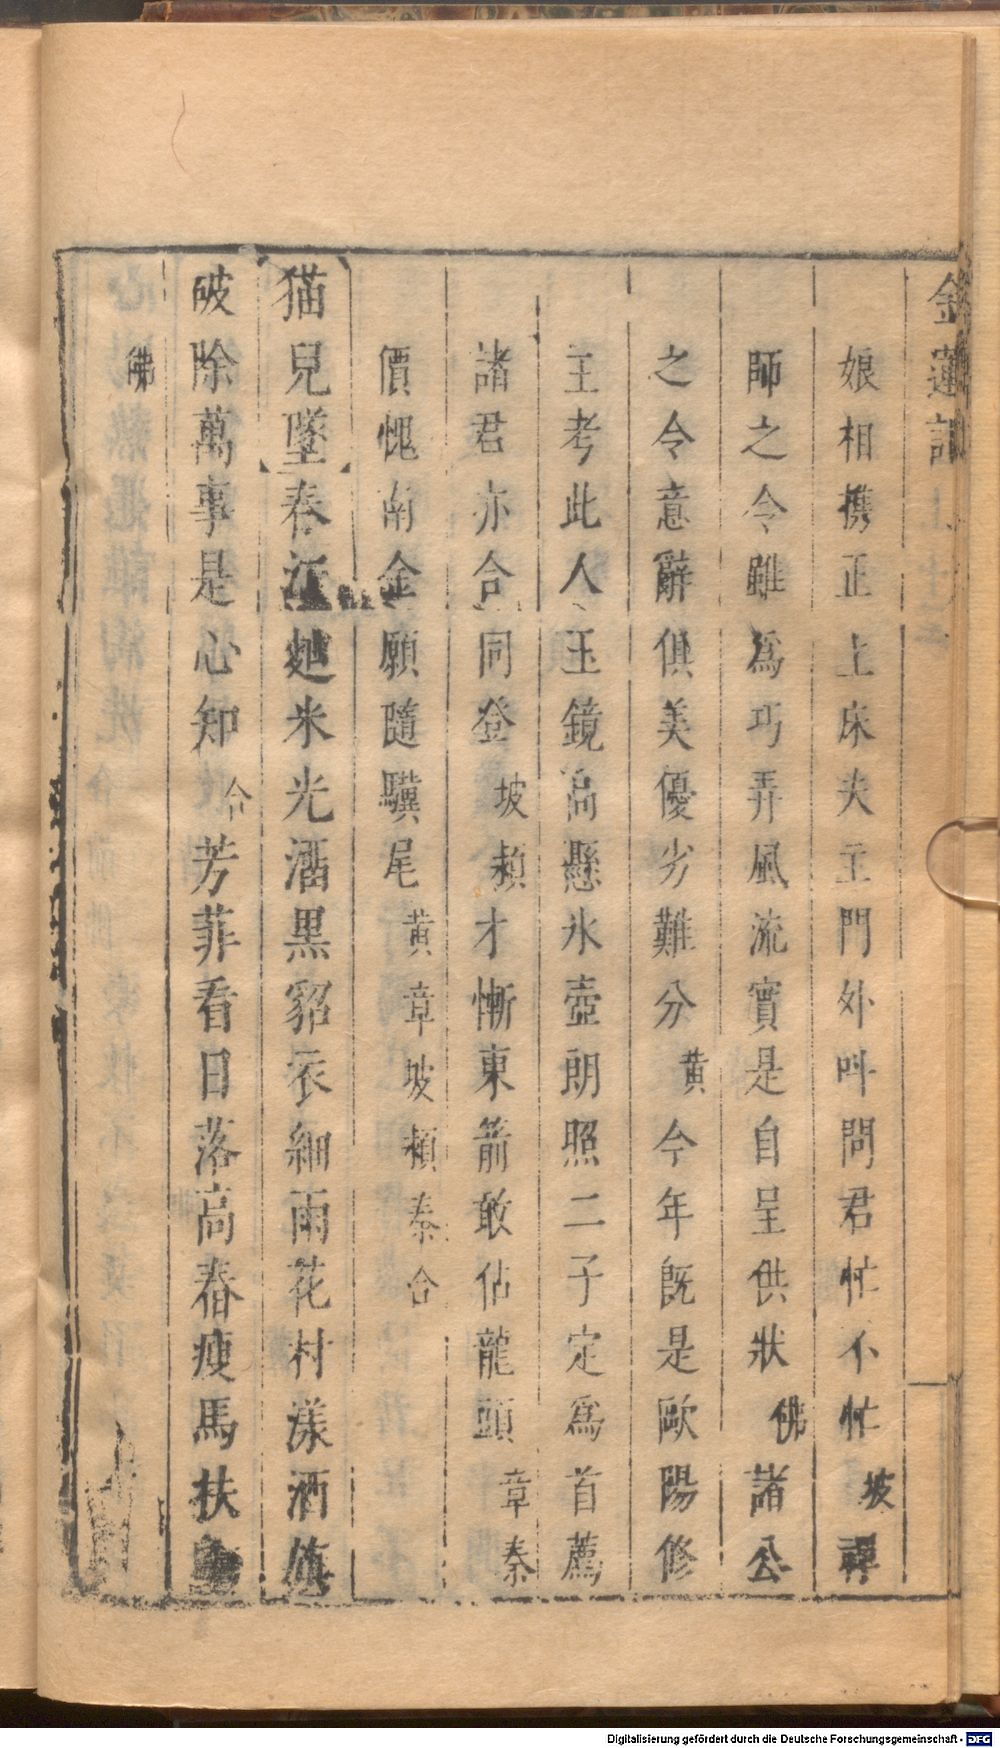 金蓮記
娘相携正上床夫主門外叫問君忙不忙坡禪
師之令雖為巧弄風流實是自呈供狀佛諸公
之令意辭俱美優劣難分黄今年旣是歐陽修
主考此人玉鏡高懸氷壺朗照二子定為首薦
諸君亦合同登坡頴才慚東箭敢佔龍頭章秦
價愧南金願隨驥尾黄章坡頴秦合
猫兒墜春江麯米光溜黒貂衣細雨花村漾酒旗
破除萬事是心知合芳菲看日落高舂瘦馬扶
佛
Digitalisierung gefördert durch die Deutsche Forschungsgemeinschaft - DFG